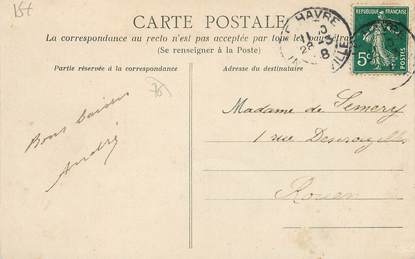 15+
CARTE POSTALE
La correspondance au recto n'est pas acceptée par tous les pays étrangers
(Se renseigner à la Poste)
Partie réservée à la correspondance
Adresse du destinataire
HAVRE
8
REPUBLIQUE FRANÇAISE
5c
POSTES
Bons Baisers
André
Madame de Semery
1 rue
Rouen